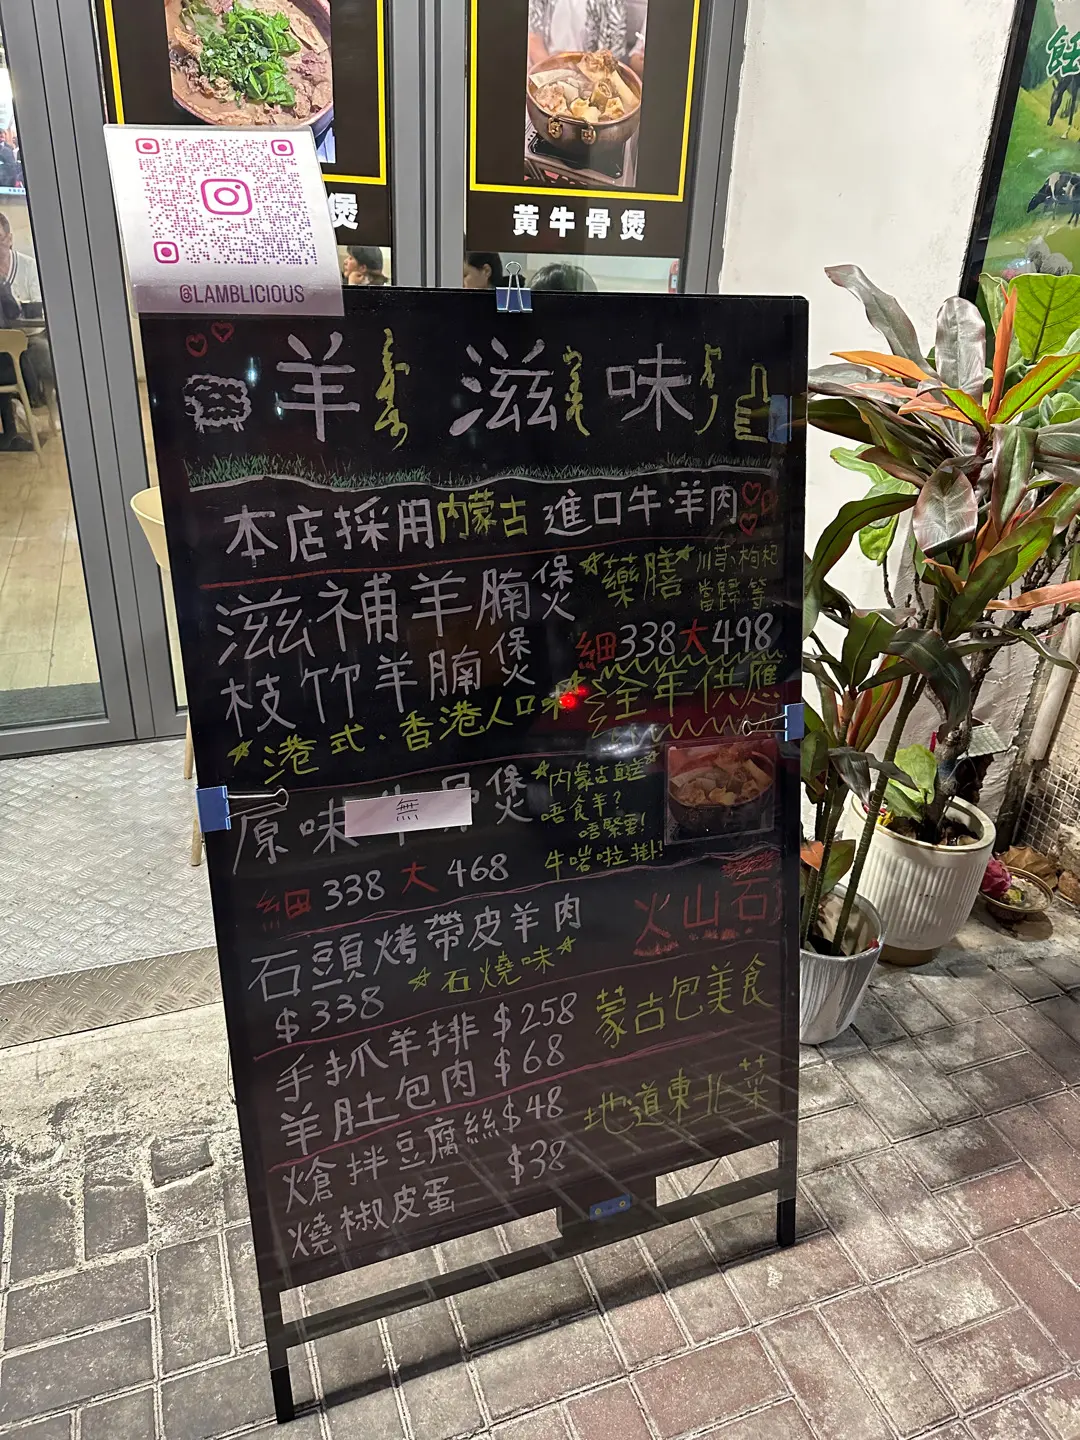 煲
黃牛骨煲
飪
@LAMBLICIOUS
羊滋味
本店採用內蒙古進口牛·羊肉
滋補羊腩煲
藥膳
川芎、枸杞
當歸等
枝竹羊腩煲
細338大498
港式·香港人口味
全年供應
原味牛骨煲
無
內蒙古直送
唔食羊？
唔緊要!
牛啱啦掛!
細338大468
石頭烤帶皮羊肉
火山石
$338
石燒味
手抓羊排$258
蒙古包美食
羊肚包肉$68
熗拌豆腐絲$48
地道東北菜
燒椒皮蛋 $38